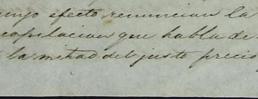 cuyo efecto renuncian la
copilacion que habla de
la mitad del justo precio